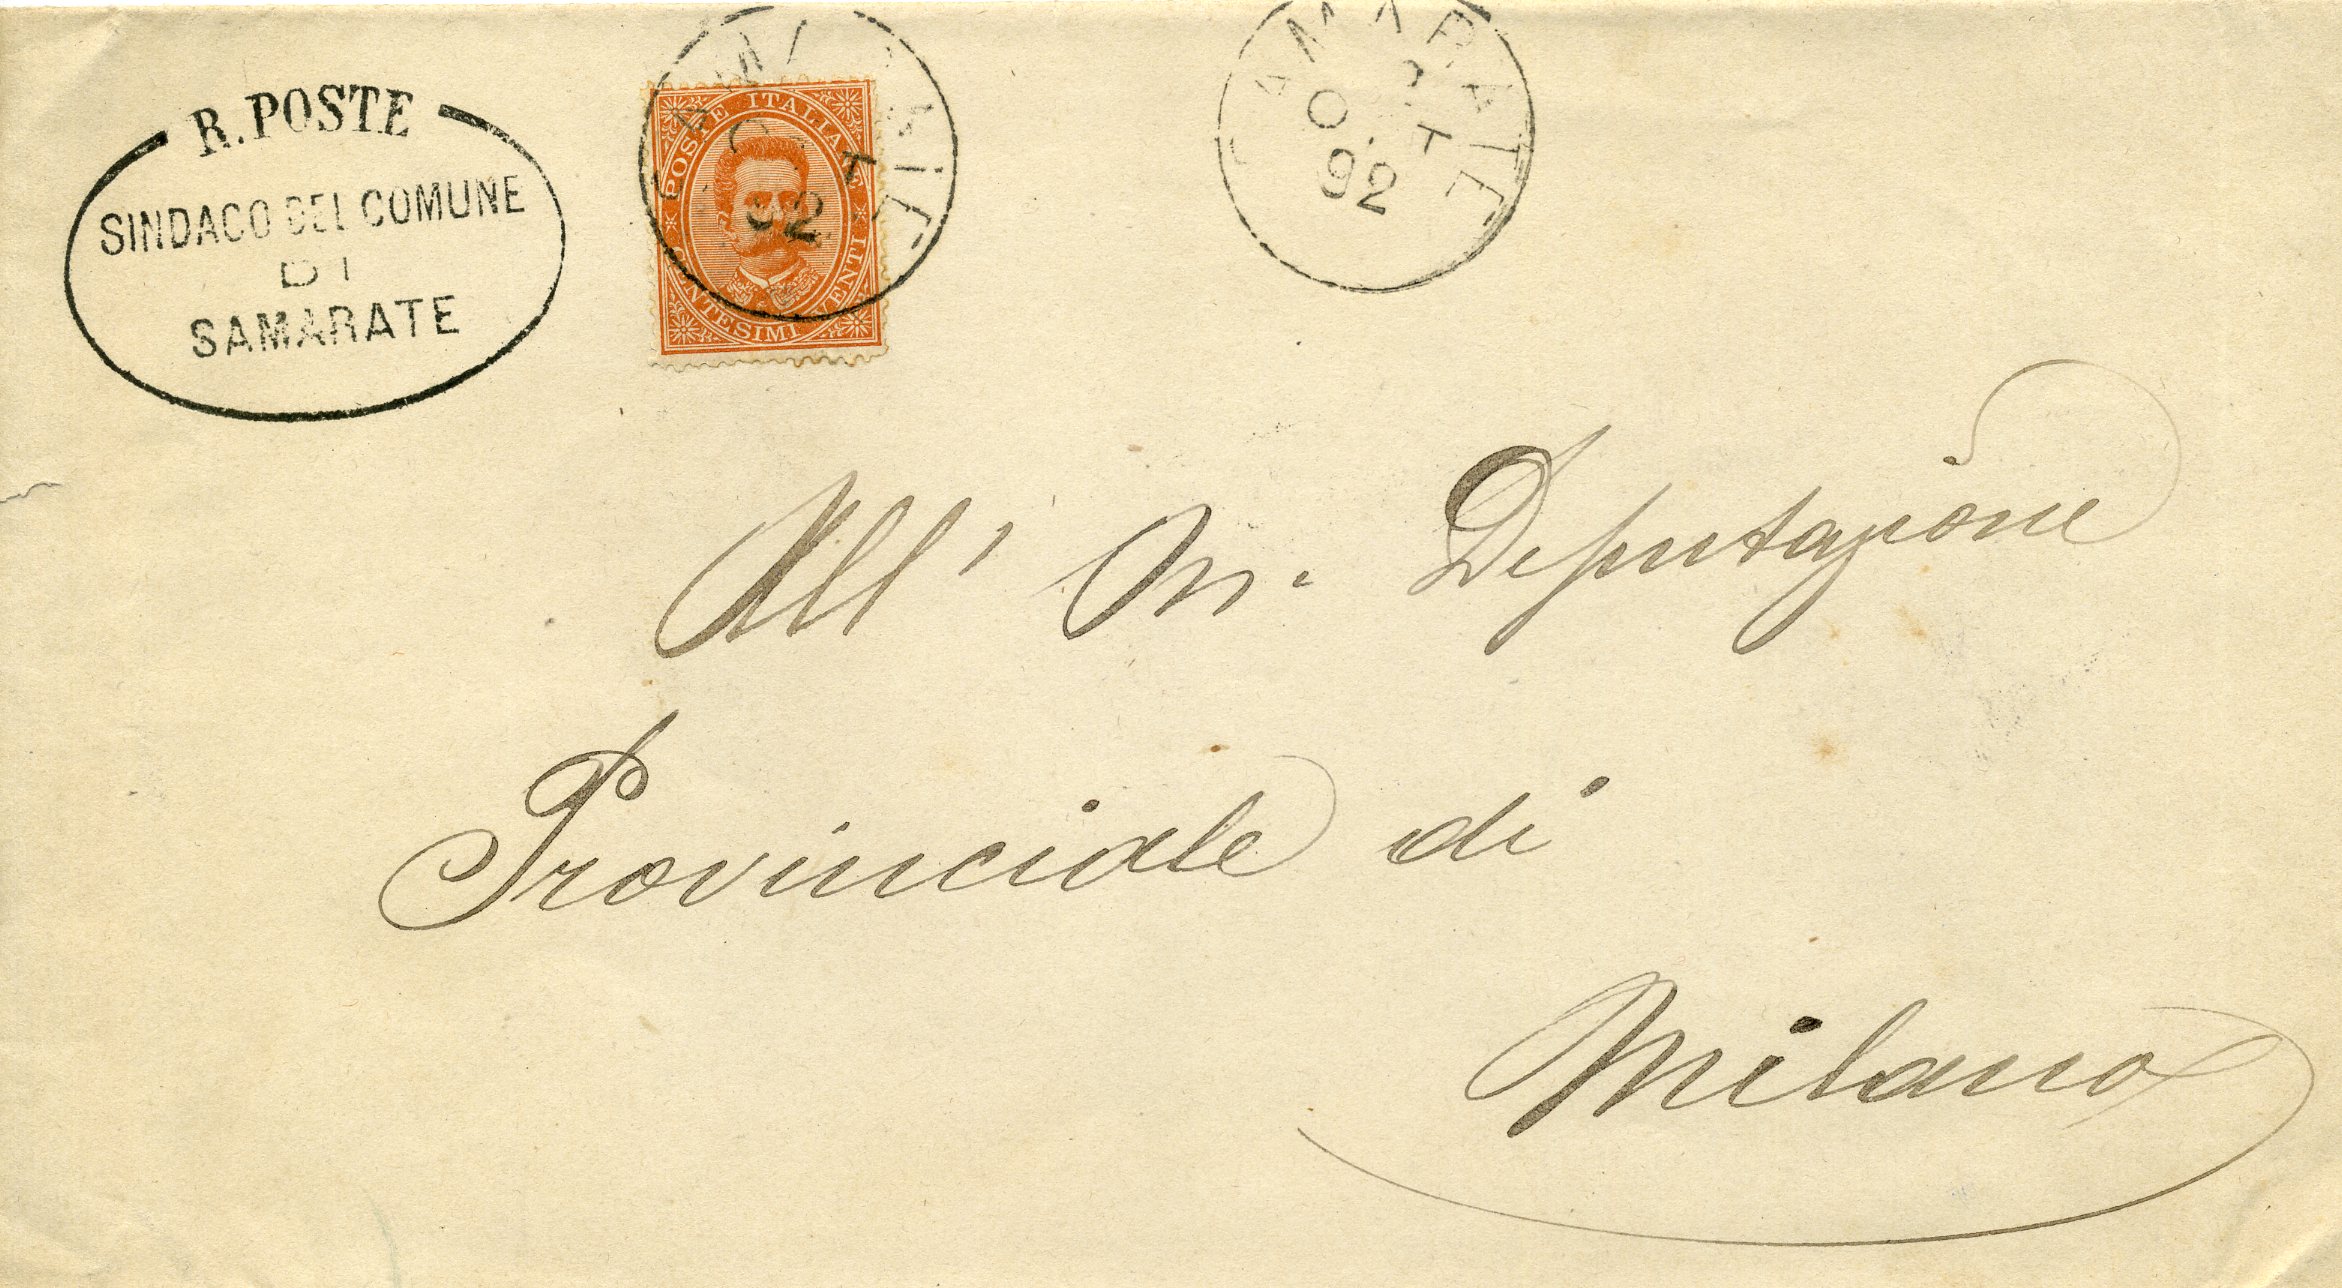 R. POSTE
SINDACO DEL COMUNE
DI
SAMARATE
POSTE ITALIANE
CENTESIMI VENTI
OT
92
SAMARATE
OT
92
All' On. Deputazione
Provinciale di
Milano